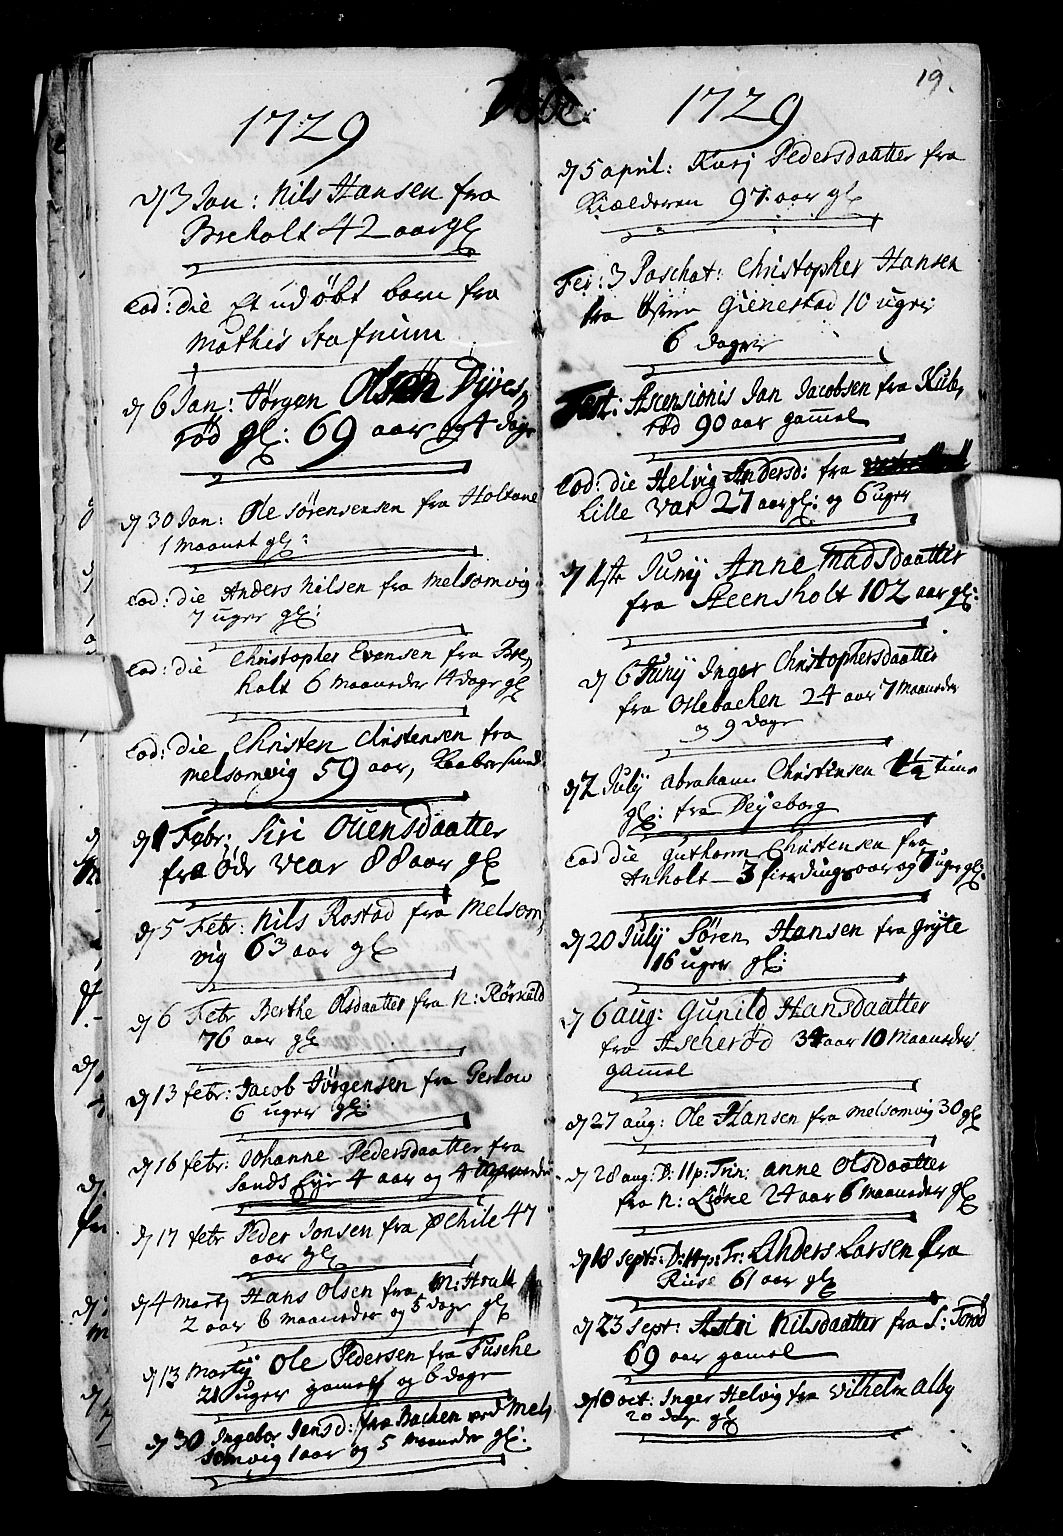 1729
d 3 Jan: Nils Hansen fra
Breholt 42 aar gl
Eod: die Et udøbt barn fra
Mathis Stafnum
d 6 Jan: Jørgen Olsen Dyves,
rød gl: 69 aar og 4 dage
d 30 Jan: Ole Sørensensen fra Holtane
1 maanet gl:
Eod: die Anders Nilsen fra Melsomvig
7 uger gl:
Eod: die Christopher Evensen fra Bre,
holt 6 maaneder 14 dage gl
Eod: die Christen Christensen fra
Melsomvig 59 aar,
d 1 Febr: Siri Ouensdaatter
fra Ødr var 88 aar gl
d 5 Febr: Nils Rostad fra Melsom,
vig 63 aar gl
d 6 Febr Berthe Olsdaatter fra N: Rørkuld
76 aar gl
d 13 febr: Jacob Jørgensen fra Gerlow
6 uger gl:
d 16 febr: Johanne Pedersdaatter fra
Sands Eye 4 aar og 4 maaneder
d 17 febr Peder Jonsen fra 47
aar gl
d 4 Martij Hans Olsen fra M:
2 aar 6 maaneder og 5 dage gl
d 13 Martij Ole Pedersen fra Fusche
21 uger gamel og 6 dage
d 30 Ingebor Jensd: fra Bachen ved Mel,
somvig 1 aar og 5 maaneder gl:
19.
1729
d 5 april: Kari Pedersdaatter fra
Kiælderen 97 aar gl
Fer: 3 Paschat: Christopher Hansen
fra Gienestad 10 uger
6 dager
Fest: Ascensionis Jan Jacobsen fra Kub,
rød 90 aar gammel
Eod: die Helvig Andersd: fra
Lille var 27 aar gl: og 6 uger
d 1ste Junij Anne Madsdaatter
fra Steensholt 102 aar gl:
d 6 Junij Inger Christophersdaatter
fra Oslebachen 24 aar 7 maaneder
9 dage
d 2 July Abraham Christensen 1½ time
gl: fra Deyeborg
Eod die Guthorm Christensen fra
Anholt 3 fierdings aar og 7 uger gl
d 20 July Søren Hansen fra Gryte
16 uger gl:
d 6 aug: Gunild Hansdaatter
fra Ascherød 34 aar 10 Maaneder
gammel
d 27 aug: Ole Hansen fra Melsomvig 30 gl
d 28 aug: D: 11 p: Trin: Anne Olsdaatter
fra N: Liøne 24 aar 6 maaneder gl
d 18 sept: D: 14 p: Tr: Anders Larsen fra
Ruse 61 aar gl
d 23 sept: Astri Nilsdaatter fra S: Torød
69 aar gamel
d 10 oct: Inger Helvig fra Vilhelm Alby
20 dar gl